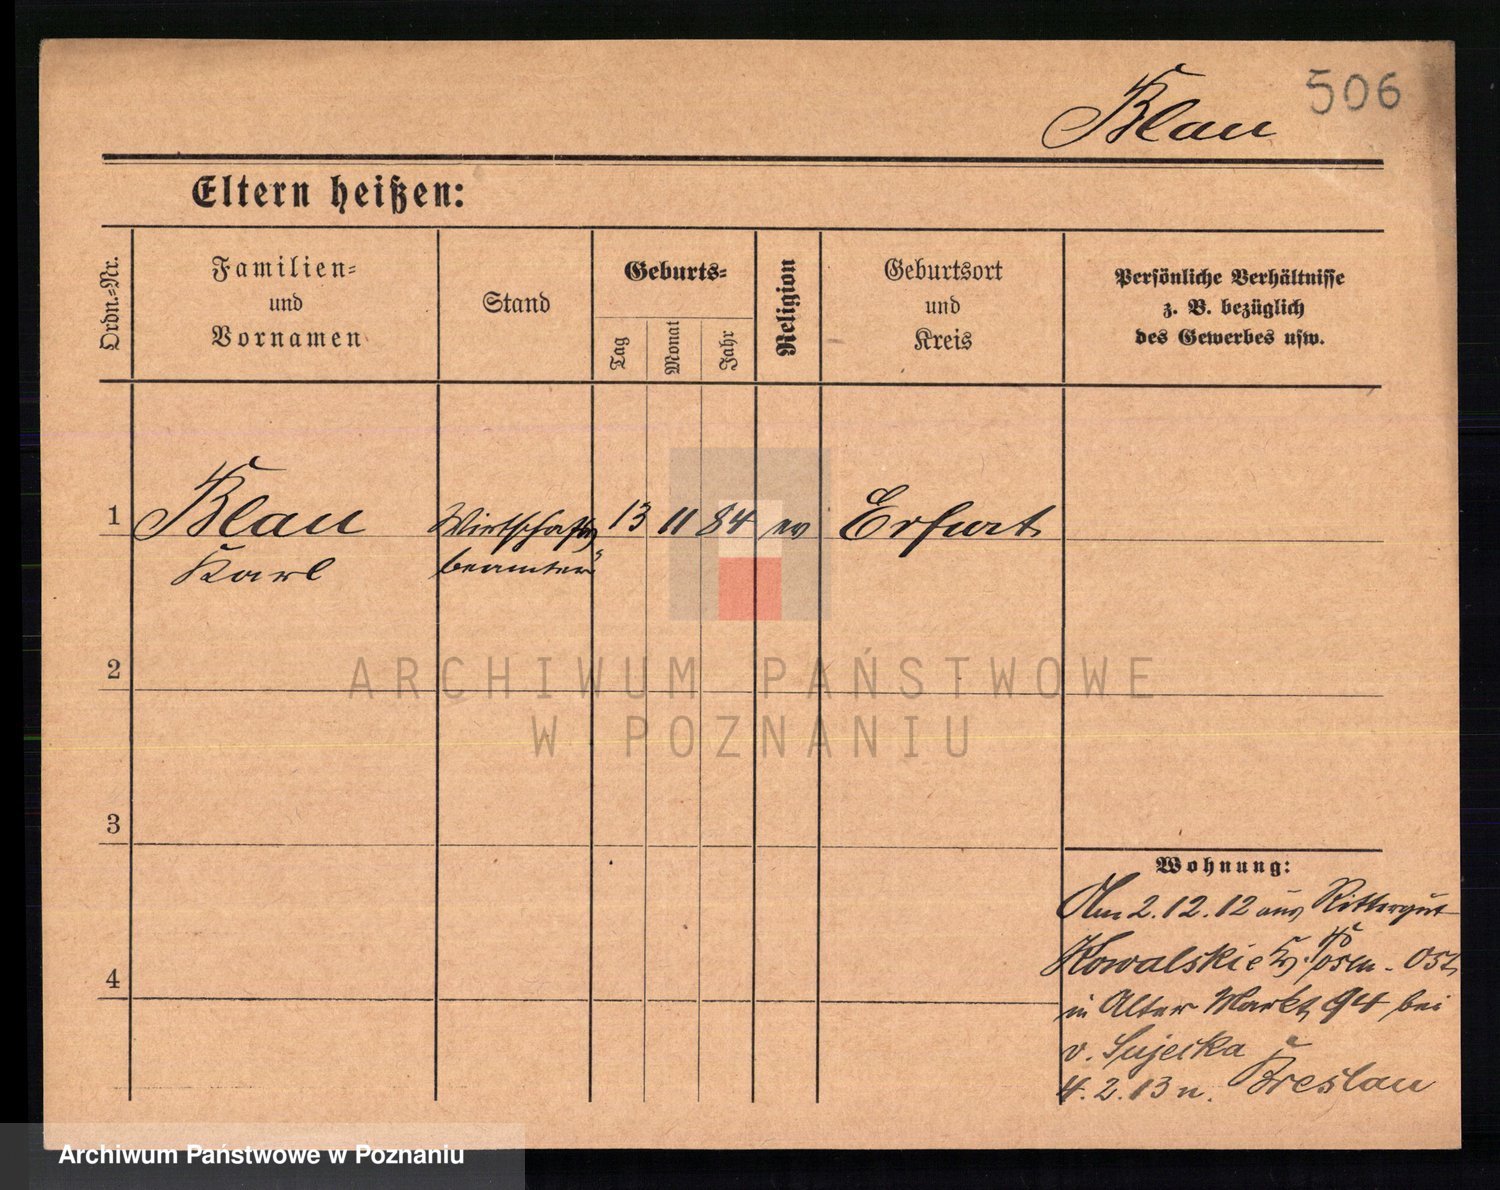 506
Blau
Eltern heißen:
Ordn.-Nr.
Familien-
und
Vornamen
Stand
Geburts-
Tag
Monat
Jahr
Religion
Geburtsort
und
Kreis
Persönliche Verhältnisse
z. B. bezüglich
des Gewerbes usw.
1
Blau
Karl
Wirtschafts
beamter
13
11
84
ev
Erfurt
2
3
4
Wohnung:
Am 2.12.12 aus Rittergut
Kowalskie Kr. Posen-Ost
in Alter Markt 94 bei
v. Sujecka
4.2.13 n. Breslau
ARCHIWUM PAŃSTWOWE
W POZNANIU
Archiwum Państwowe w Poznaniu